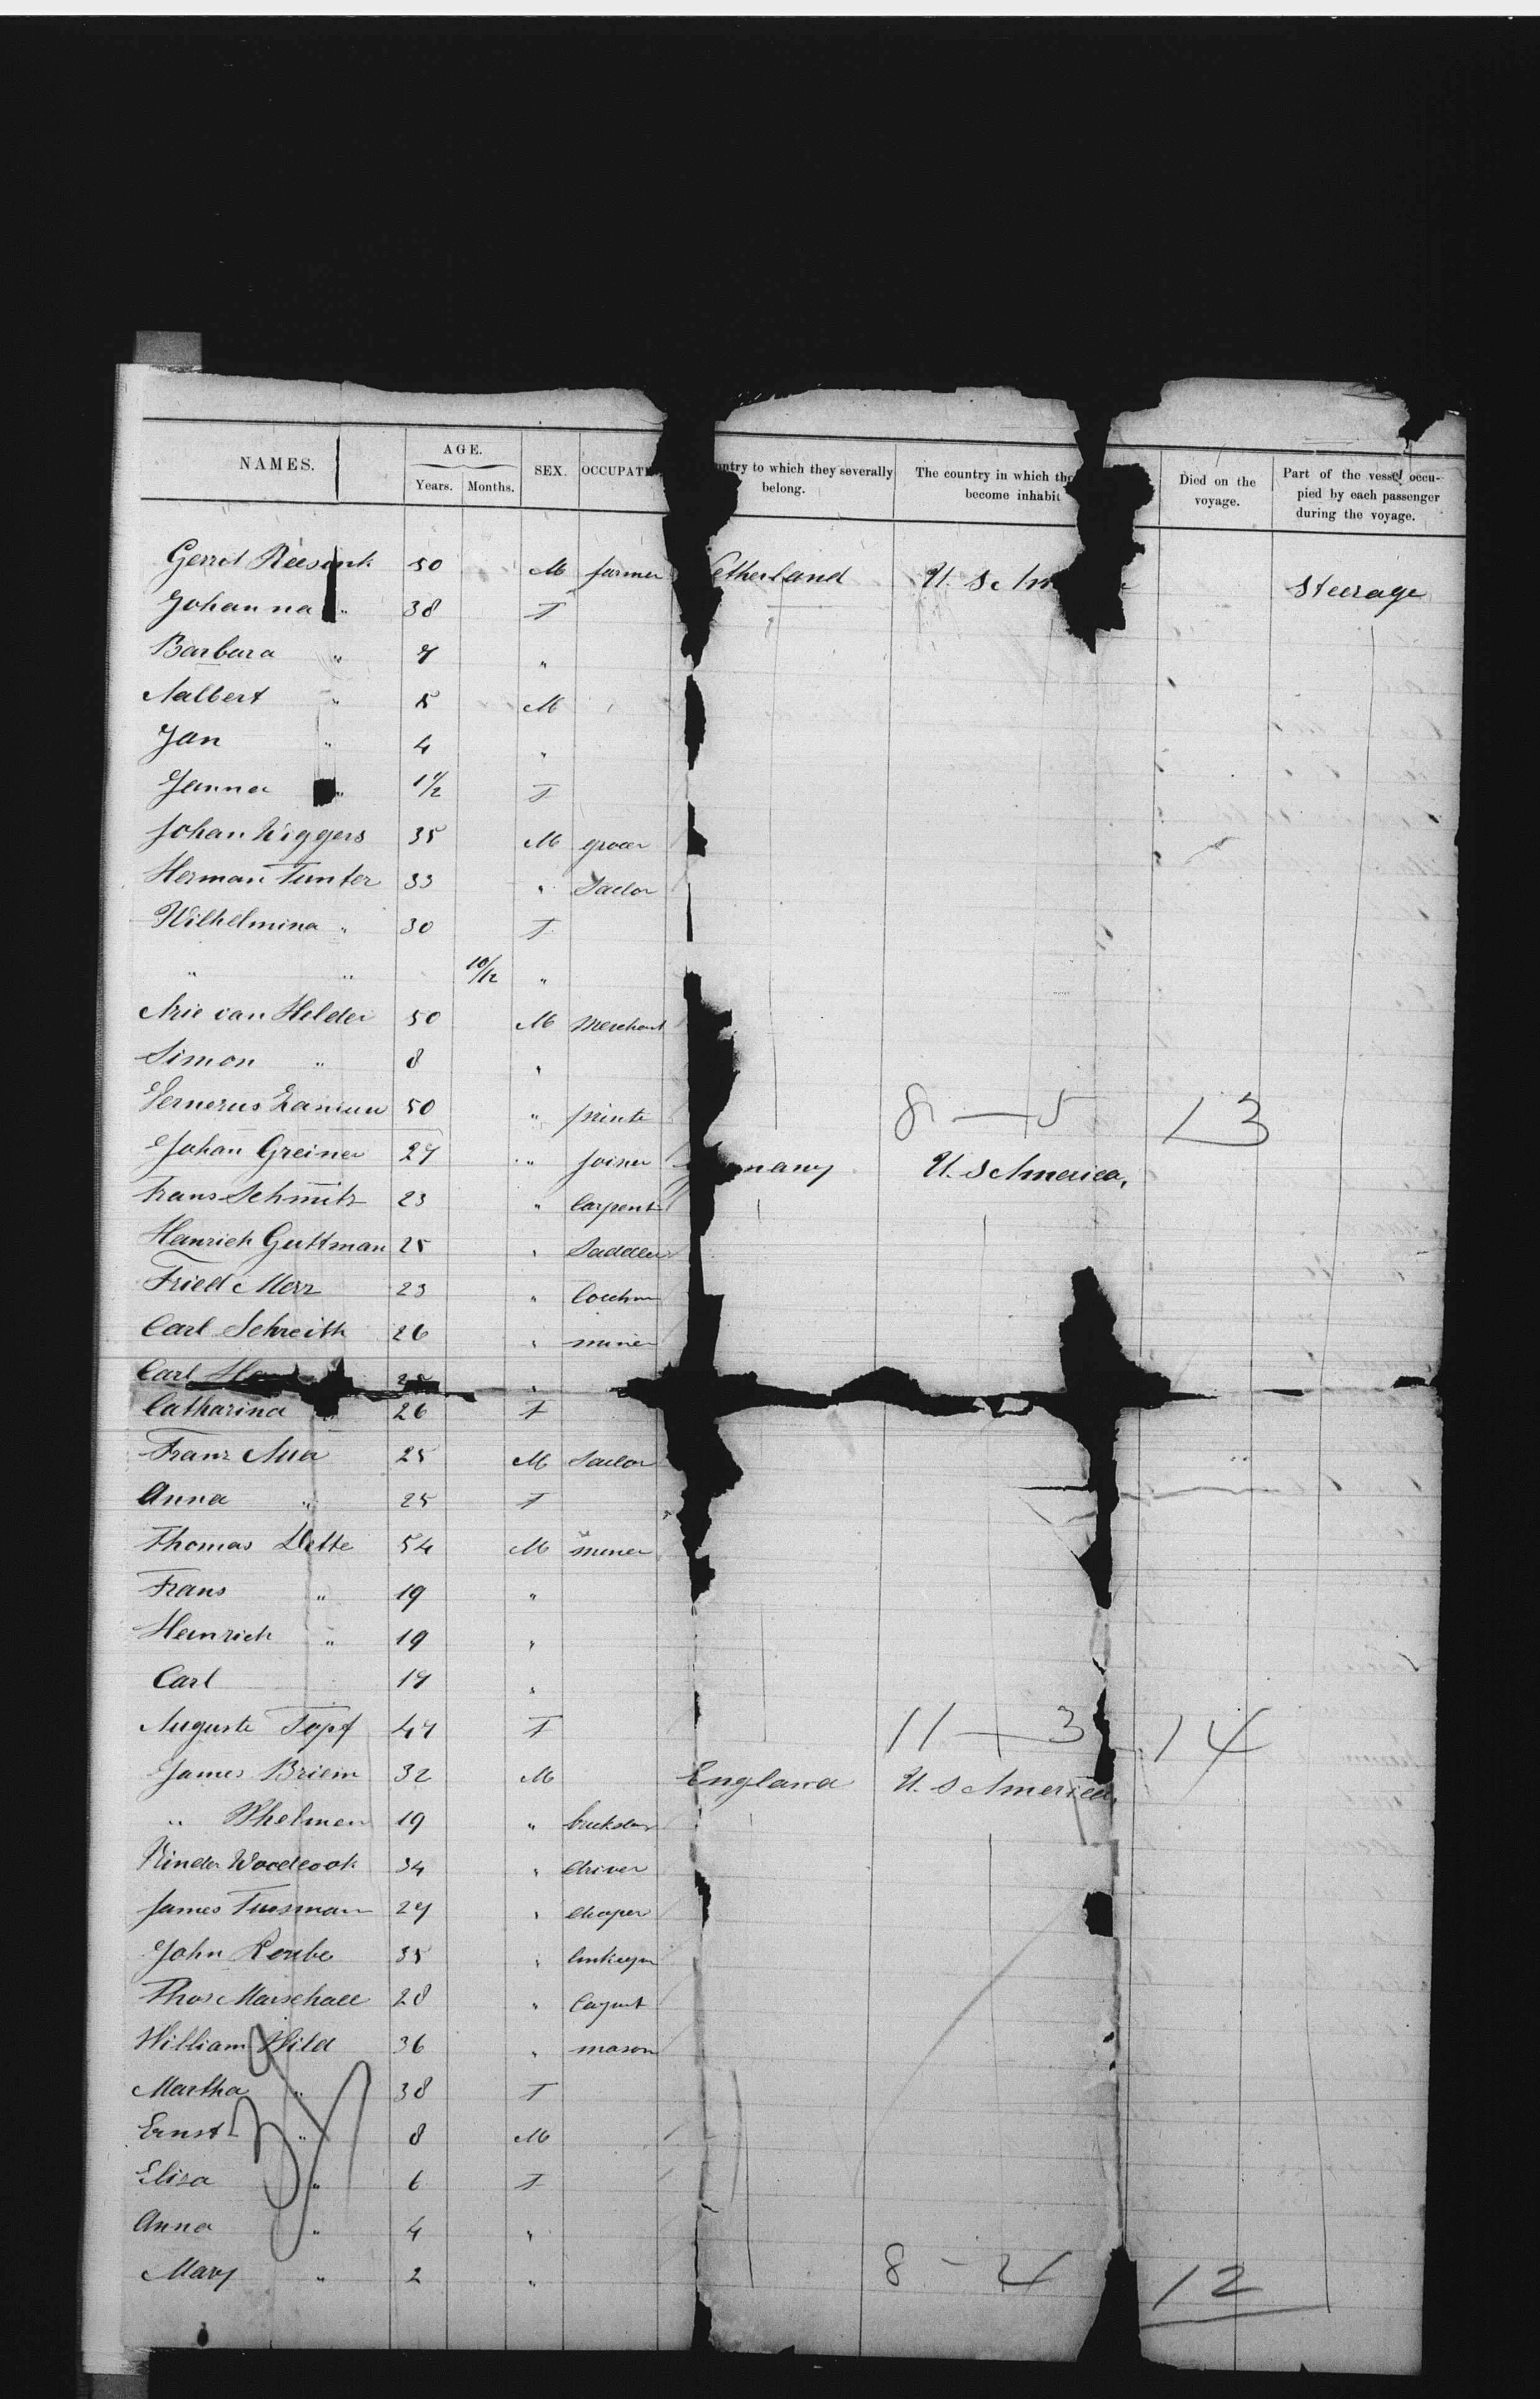 NAMES. AGE. SEX. OCCUPAT ntry to which they severally belong. The country in which the become inhabit Died on the voyage. Part of the vessel occupied by each passenger during the voyage.
Years. Months.
Gerrit Reesink 50 M farmer etherland U. S Am Steerage
Johanna " 38 F
Barbara " 7 "
Aalbert " 5 M
Jan " 4 "
Janna " 1½ F
Johan Wiggers 35 M grocer
Herman Tunter 33 " Tailor
Wilhelmina " 30 F
" " 10/12 "
Arie van Helder 50 M Merchant
Simon " 8 "
50 " printe 8 — 5 13
Johan Greiner 27 " Joiner many U. S America,
Frans Schmitz 23 " Carpent
Heinrich Guttman 25 " Saddler
Fried Merz 23 "
Carl Schreith 26 " miner
Carl "
Catharina 26 F
Franz Aua 25 M Tailor
Anna " 25 F
Thomas Dette 54 M miner
Frans " 19 "
Heinrich " 19 "
Carl 17 "
Auguste Topf 47 F 11 — 3 14
James Briem 32 M England U. S America,
" Whelmen 19 "
Kinder Woodcock 34 " driver
James Tussman 27 " draper
John 35 "
Thos Marschall 28 "
William Wild 36 " mason
Martha " 38 F
Ernst " 8 M
Elisa " 6 F
Anna " 4 "
Mary " 2 " 8 — 4 12